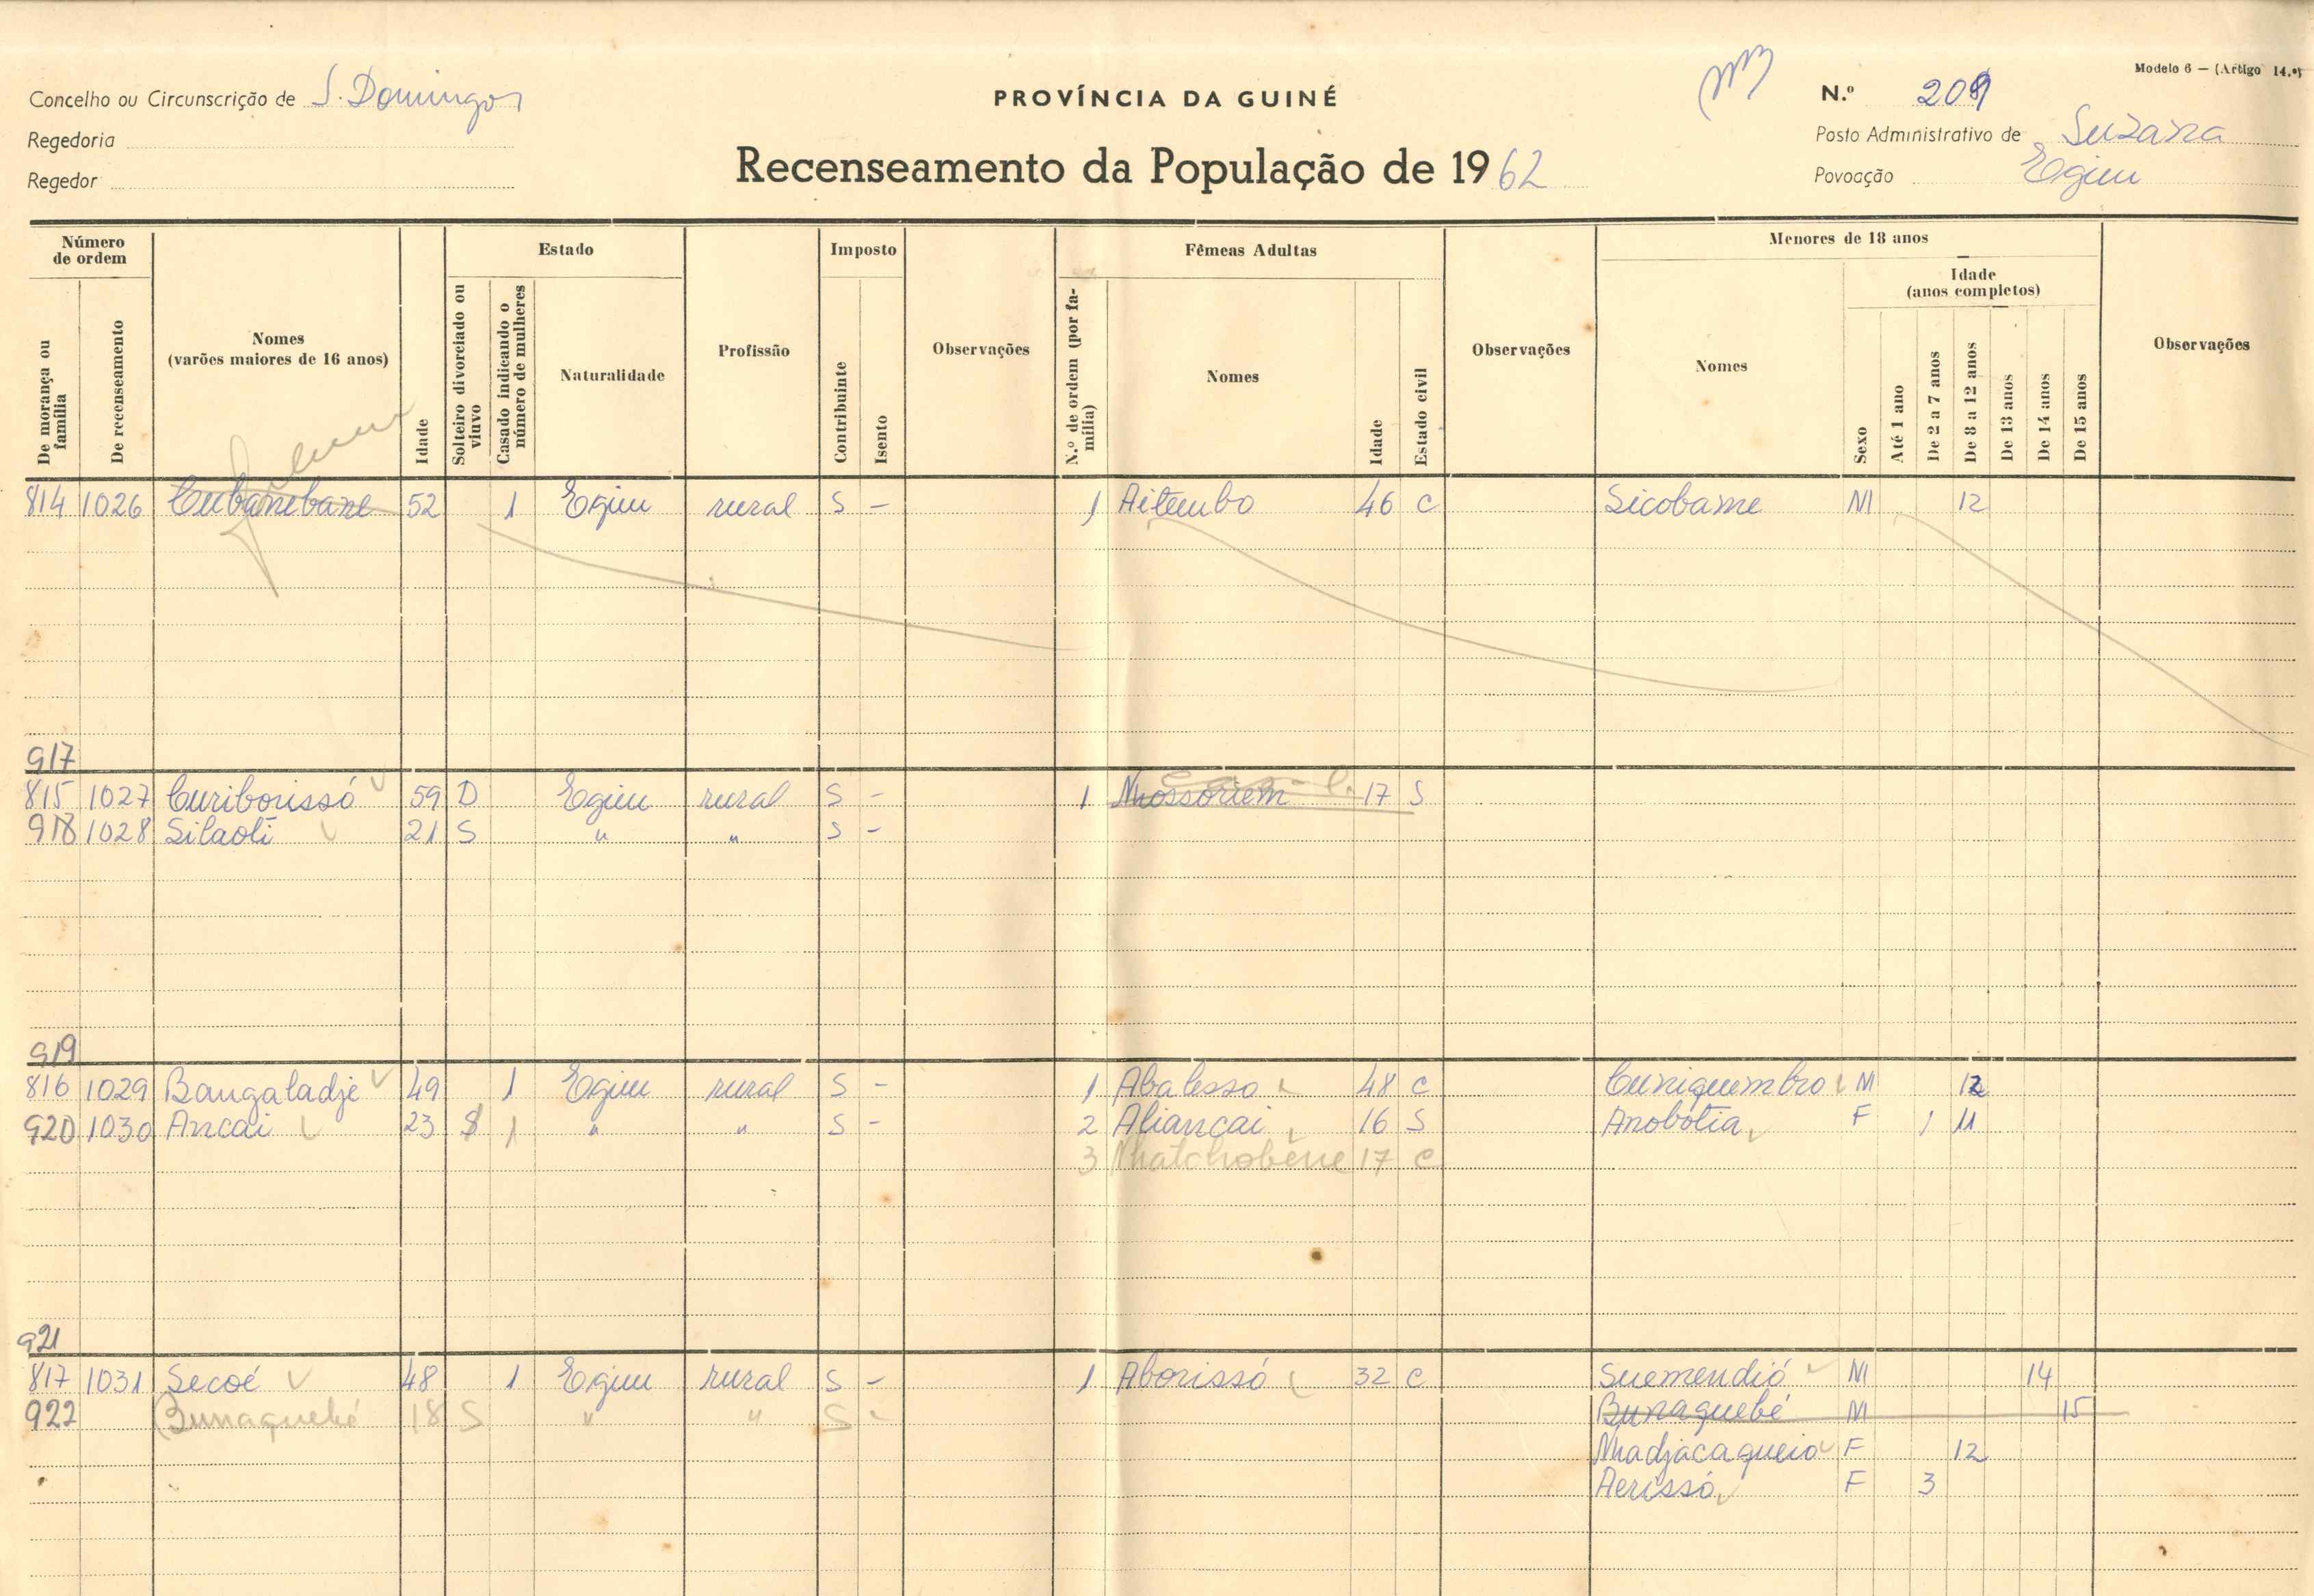 Modelo 6 — (Artigo 14.º)
Concelho ou Circunscrição de S. Domingos
PROVÍNCIA DA GUINÉ
N.º 209
Regedoria
Posto Administrativo de Suzana
Recenseamento da População de 1962
Regedor
Povoação Egim
Número de ordem
Estado
Imposto
Fêmeas Adultas
Menores de 18 anos
Idade (anos completos)
De morança ou família
De recenseamento
Nomes (varões maiores de 16 anos)
Idade
Solteiro divorciado ou viuvo
Casado indicando o número de mulheres
Naturalidade
Profissão
Contribuinte
Isento
Observações
N.º de ordem (por família)
Nomes
Idade
Estado civil
Observações
Nomes
Sexo
Até 1 ano
De 2 a 7 anos
De 8 a 12 anos
De 13 anos
De 14 anos
De 15 anos
Observações
814 1026 Cubanebane 52 1 Egim rural S - 1 Aitembo 46 C Sicobame M 12
917
815 1027 Curiborissó 59 D Egim rural S - 1 Nhossoriem 17 S
918 1028 Silaoli 21 S " " S -
919
816 1029 Bangaladje 49 1 Egim rural S - 1 Abalesso 48 C Cuniquembro M 12
920 1030 Ancai 23 S 1 " " S - 2 Aliancai 16 S Anobótia F 11
3 Nhatchobene 17 C
921
817 1031 Secoé 48 1 Egim rural S - 1 Aborissó 32 C Suemendió M 14
922 Bunaquebé 18 S " " S - Bunaquebé M 15
Nhadjacaqueio F 12
Aerissó F 3